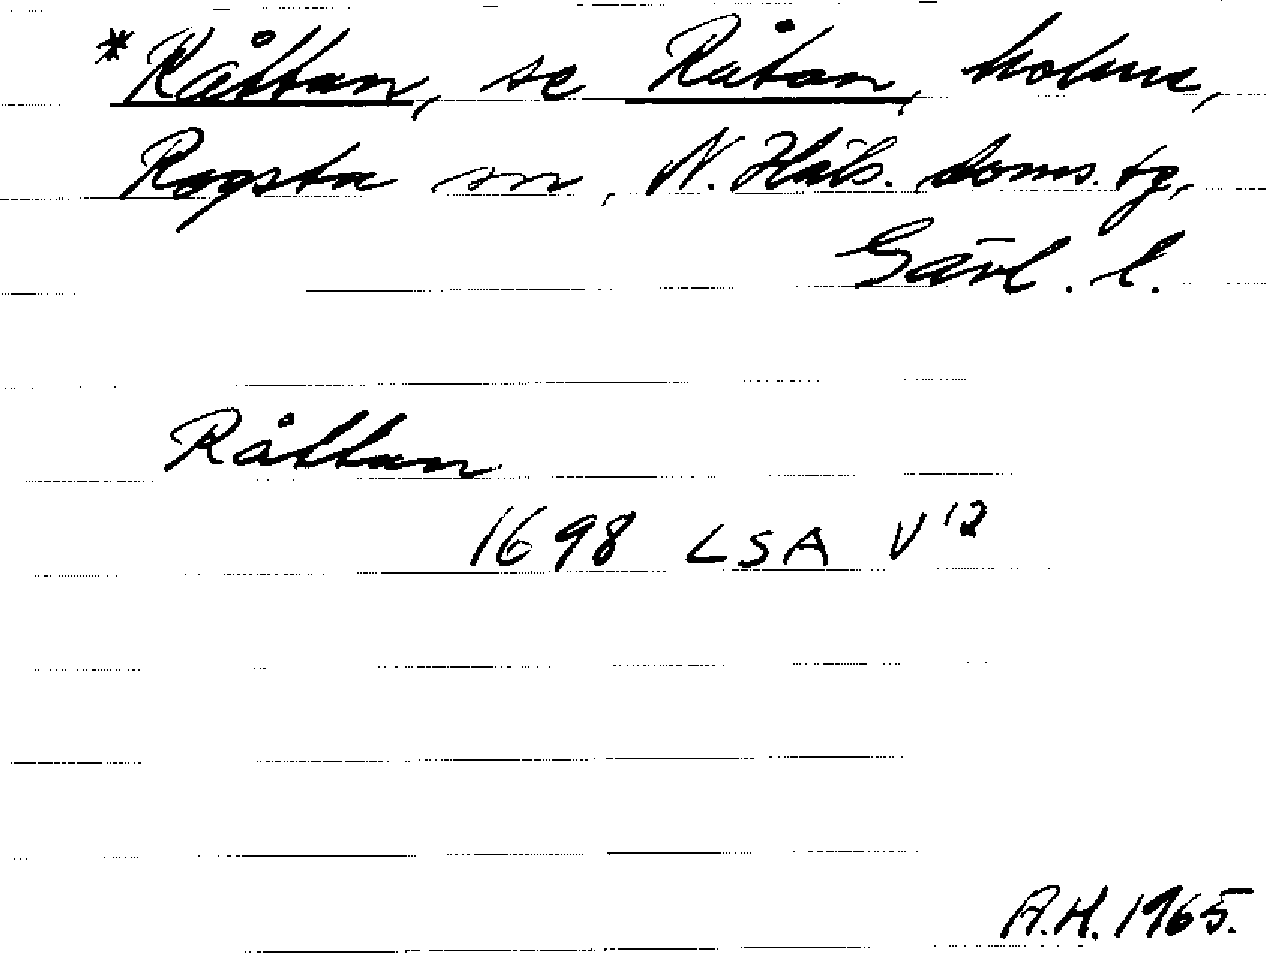 *Råttan, se Råtan, holme,
Rogsta sn, N. Häls. doms. tg,
Gävl. l.
Råttan
1698 LSA V 12
A.H. 1965.